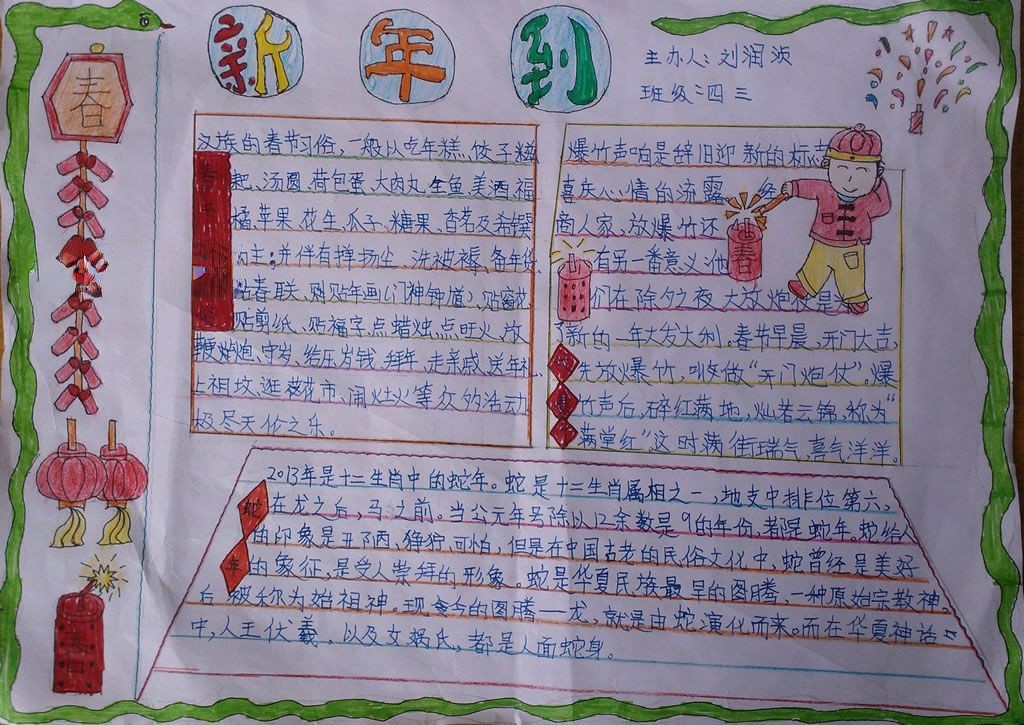 新年到
主办人:刘润浈
班级:四三
春
汉族的春节习俗,一般以吃年糕、饺子、糍
粑、汤圆、荷包蛋、大肉丸、全鱼、美酒、福
橘、苹果、花生、瓜子、糖果、香茗及
为主;并伴有掸扬尘、洗被褥、备年货、
贴春联、贴年画、贴
贴剪纸、贴福字、点蜡烛、点旺火、放
鞭炮、守岁、给压岁钱、拜年、走亲戚、送年礼、
上祖坟、逛花市、闹社火等众多活动
极尽天伦之乐。
爆竹声响是辞旧迎新的标志
喜庆心情的流露
商人家,放爆竹还
有另一番意义:他
们在除夕之夜大放炮仗是为
新的一年大发大利。春节早晨,开门大吉,
先放爆竹,叫做“开门炮仗”。爆
竹声后,碎红满地,灿若云锦,称为“
满堂红”。这时满街瑞气,喜气洋洋。
春
蛇
年
2013年是十二生肖中的蛇年。蛇是十二生肖属相之一,地支中排位第六,
在龙之后,马之前。当公元年号除以12余数是9的年份,都是蛇年。蛇给人
的印象是丑陋、狰狞、可怕,但是在中国古老的民俗文化中,蛇曾经是美好
的象征,是受人崇拜的形象。蛇是华夏民族最早的图腾,一种原始宗教神,
后被称为始祖神。现今的图腾——龙,就是由蛇演化而来。而在华夏神话
中,人王伏羲,以及女娲氏,都是人面蛇身。
春